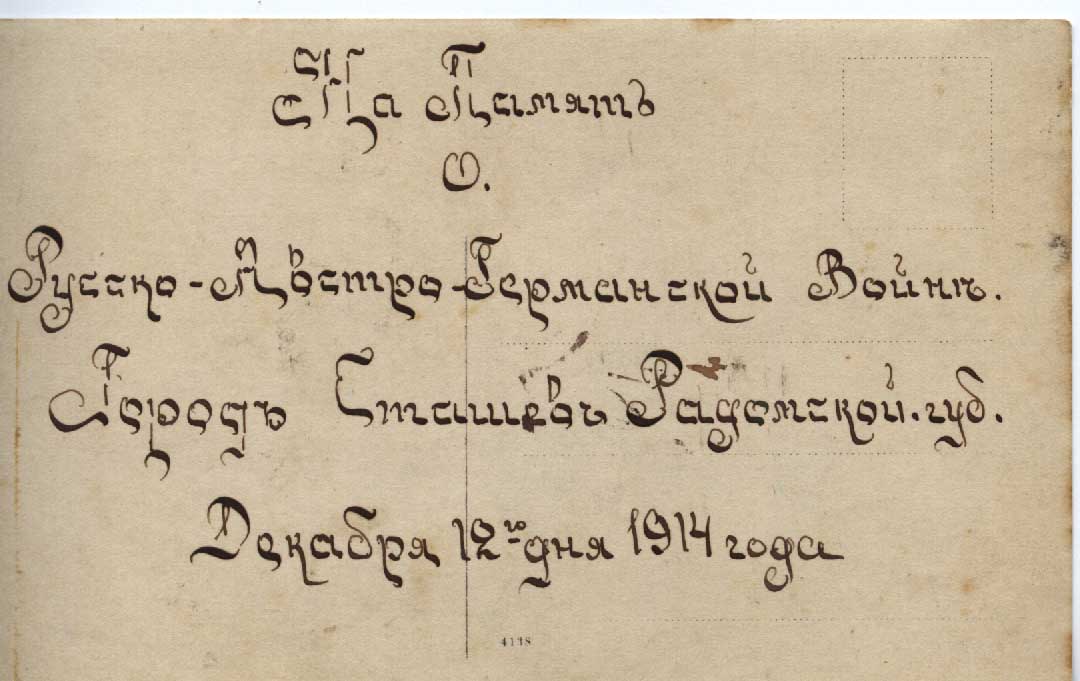 На Память
О.
Русско-Австро-Германской Войнѣ.
Городъ Сташевъ Радомской. губ.
Декабря 12го дня 1914 года
4118